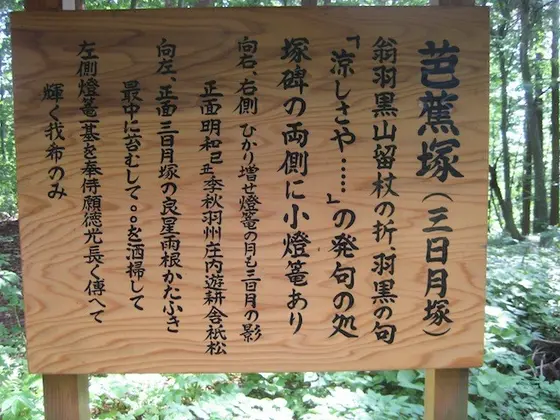 芭蕉塚(三日月塚)
翁羽黒山留杖の折、羽黒の句
「涼しさや……」の発句の処
塚碑の両側に小燈篭あり
向右、右側 ひかり増せ燈篭の月も三日月の影
正面明和己丑季秋羽州庄内遊耕舎祇松
向左、正面三日月塚の良星雨根かたぶき
最中に苔むして。。を洒掃して
左側燈篭一基を奉侍願徳光長く傳へて
輝く我布のみ